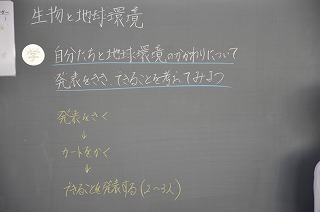 生物と地球環境
学 自分たちと地球環境のかかわりについて
発表をきき、できることを考えてみよう
発表をきく
↓
カードをかく
↓
できることを発表する(2〜3人)